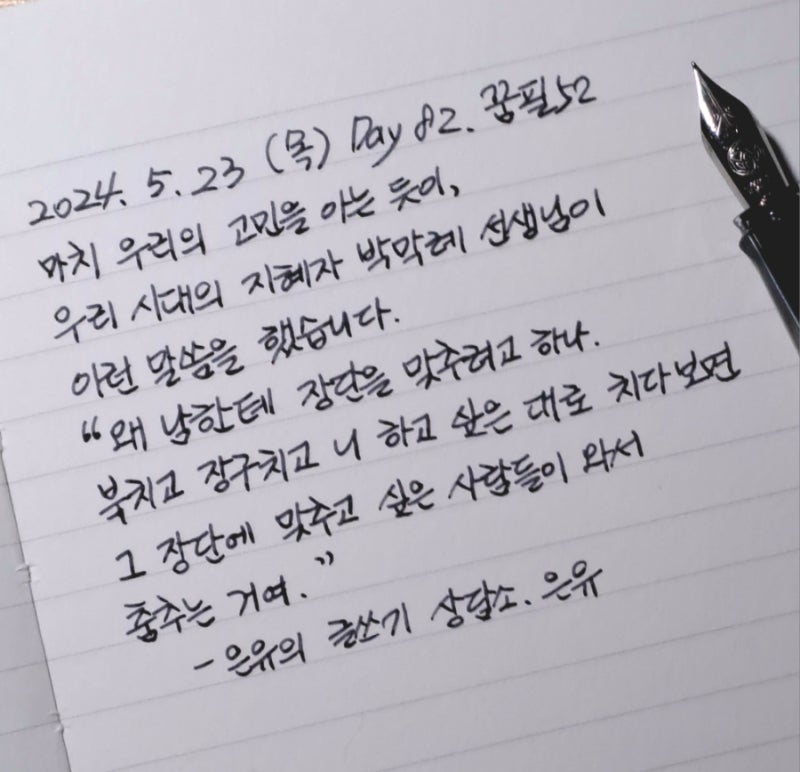 2024. 5. 23 (목) Day 82. 꿈필52
마치 우리의 고민을 아는 듯이,
우리 시대의 지혜자 박막례 선생님이
이런 말씀을 했습니다.
“왜 남한테 장단을 맞추려고 하나.
북치고 장구치고 니 하고 싶은 대로 치다보면
그 장단에 맞추고 싶은 사람들이 와서
춤추는 거여.”
- 은유의 글쓰기 상담소. 은유